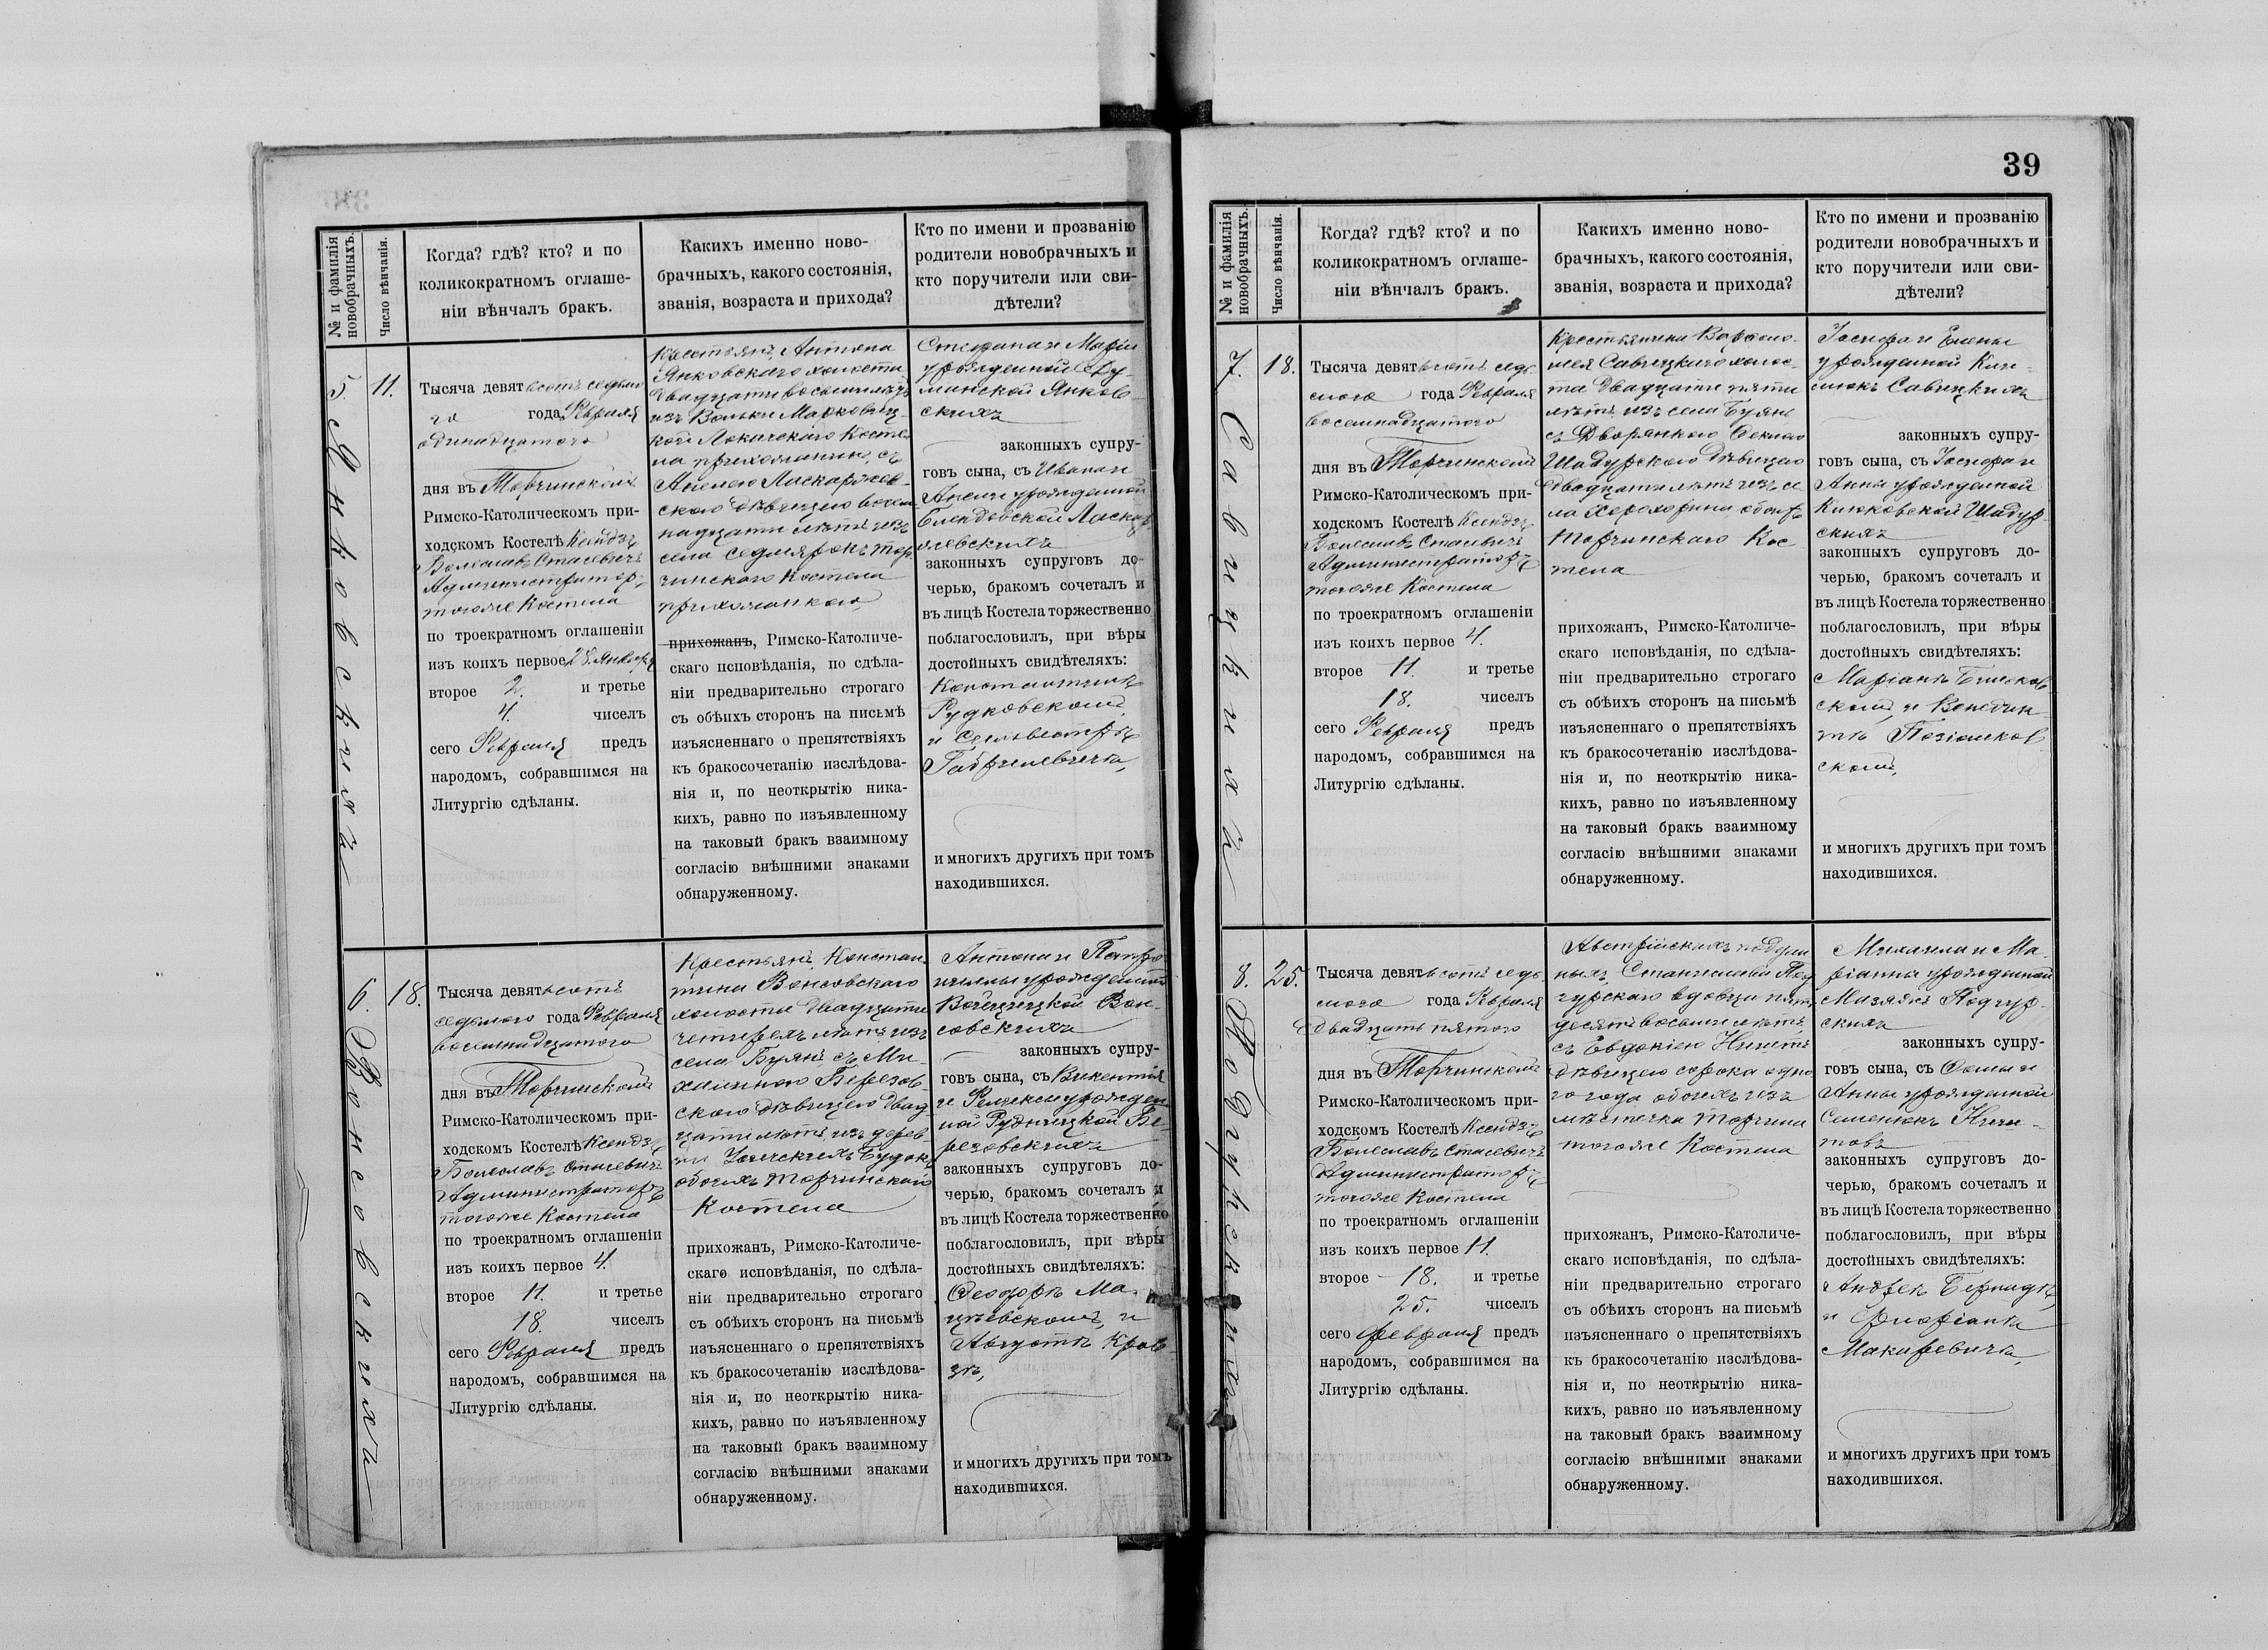 № и фамилія
новобрачныхъ.
Число вѣнчанія.
Когда? гдѣ? кто? и по
коликократномъ оглаше-
ніи вѣнчалъ бракъ.
Какихъ именно ново-
брачныхъ, какого состоянія,
званія, возраста и прихода?
Кто по имени и прозванію
родители новобрачныхъ и
кто поручители или сви-
дѣтели?
5.
Янковскихъ
11.
Тысяча девятьсотъ седьмо
го года Февраля
одинадцатого
дня въ Торчинскомъ
Римско-Католическомъ при-
ходскомъ Костелѣ Ксендзъ
Болеславъ Стасевичъ
Администраторъ
тогоже Костела
по троекратномъ оглашеніи
изъ коихъ первое 28. Января
второе 2. и третье
4. чиселъ
сего Февраля предъ
народомъ, собравшимся на
Литургію сдѣланы.
Крестьянъ, Антона
Янковскаго холоста
двадцативосьми лѣтъ
изъ Вольки Марковиц-
кой Локачскаго Косте-
ла прихожанина, съ
Анелею Ласкаржев-
скою дѣвицею восем-
надцати лѣтъ изъ
села Седмярокъ Тор
чинскаго Костела
прихожанкою,
прихожанъ, Римско-Католиче-
скаго исповѣданія, по сдѣла-
ніи предварительно строгаго
съ обѣихъ сторонъ на письмѣ
изъясненнаго о препятствіяхъ
къ бракосочетанію изслѣдова-
нія и, по неоткрытію ника-
кихъ, равно по изъявленному
на таковый бракъ взаимному
согласію внѣшними знаками
обнаруженному.
Стефана и Маріи
урожденной
Янков-
скихъ
законныхъ супру-
говъ сына, съ Ивана и
Анели урожденной
Блендовской Ласкар
жевскихъ
законныхъ супруговъ до-
черью, бракомъ сочеталъ и
въ лицѣ Костела торжественно
поблагословилъ, при вѣры
достойныхъ свидѣтеляхъ:
Константинѣ
Рудковскомъ,
и Сельвестрѣ
Габрилевичѣ,
и многихъ другихъ при томъ
находившихся.
6.
Вонсовскихъ
18.
Тысяча девятьсотъ
седьмого года Февраля
восемнадцатого
дня въ Торчинскомъ
Римско-Католическомъ при-
ходскомъ Костелѣ Ксендзъ
Болеславъ Стасевичъ
Администраторъ
тогоже Костела
по троекратномъ оглашеніи
изъ коихъ первое 4.
второе 11. и третье
18. чиселъ
сего Февраля предъ
народомъ, собравшимся на
Литургію сдѣланы.
Крестьянъ, Констан-
тина Вонсовскаго
холоста двадцати
четырехъ лѣтъ изъ
села Буянъ, съ Ми-
халиною Березов-
скою дѣвицею двад
цати лѣтъ изъ дерев-
ни Будокъ
обоихъ Торчинскаго
Костела
прихожанъ, Римско-Католиче-
скаго исповѣданія, по сдѣла-
ніи предварительно строгаго
съ обѣихъ сторонъ на письмѣ
изъясненнаго о препятствіяхъ
къ бракосочетанію изслѣдова-
нія и, по неоткрытію ника-
кихъ, равно по изъявленному
на таковый бракъ взаимному
согласію внѣшними знаками
обнаруженному.
Антона и Петро
нилы урожденной
Войцицкой Вон-
совскихъ
законныхъ супру-
говъ сына, съ Викентія
и Феликсы урожден
ной Рудницкой Бе-
резовскихъ
законныхъ супруговъ до-
черью, бракомъ сочеталъ и
въ лицѣ Костела торжественно
поблагословилъ, при вѣры
достойныхъ свидѣтеляхъ:
Феофорѣ Ма-
цѣевскомъ, и
Августѣ Крав
зѣ,
и многихъ другихъ при томъ
находившихся.
39
№ и фамилія
новобрачныхъ.
Число вѣнчанія.
Когда? гдѣ? кто? и по
коликократномъ оглаше-
ніи вѣнчалъ бракъ.
Какихъ именно ново-
брачныхъ, какого состоянія,
званія, возраста и прихода?
Кто по имени и прозванію
родители новобрачныхъ и
кто поручители или сви-
дѣтели?
7.
Савицкихъ
18.
Тысяча девятьсотъ седь
мого года Февраля
восемнадцатого
дня въ Торчинскомъ
Римско-Католическомъ при-
ходскомъ Костелѣ Ксендзъ
Болеславъ Стасевичъ
Администраторъ
тогоже Костела
по троекратномъ оглашеніи
изъ коихъ первое 4.
второе 11. и третье
18. чиселъ
сего Февраля предъ
народомъ, собравшимся на
Литургію сдѣланы.
Крестьянина Варфоло-
мея Савицкаго холос-
та двадцати пяти
лѣтъ изъ села Буянъ
съ Дворянкою
Шадурскою дѣвицею
двадцати лѣтъ изъ се
ла Хорохорина, обоихъ
Торчинскаго Кос
тела
прихожанъ, Римско-Католиче-
скаго исповѣданія, по сдѣла-
ніи предварительно строгаго
съ обѣихъ сторонъ на письмѣ
изъясненнаго о препятствіяхъ
къ бракосочетанію изслѣдова-
нія и, по неоткрытію ника-
кихъ, равно по изъявленному
на таковый бракъ взаимному
согласію внѣшними знаками
обнаруженному.
Іосифа и Елены
урожденной
Савицкихъ
законныхъ супру-
говъ сына, съ Іосифа и
Анны урожденной
Шадур
скихъ
законныхъ супруговъ до-
черью, бракомъ сочеталъ и
въ лицѣ Костела торжественно
поблагословилъ, при вѣры
достойныхъ свидѣтеляхъ:
Маріанѣ
скомъ, и Венедик-
тѣ
скомъ,
и многихъ другихъ при томъ
находившихся.
8.
Подгурскихъ
25.
Тысяча девятьсотъ седь-
мого года Февраля
двадцать пятого
дня въ Торчинскомъ
Римско-Католическомъ при-
ходскомъ Костелѣ Ксендзъ
Болеславъ Стасевичъ
Администраторъ
тогоже Костела
по троекратномъ оглашеніи
изъ коихъ первое 11.
второе 18. и третье
25. чиселъ
сего февраля предъ
народомъ, собравшимся на
Литургію сдѣланы.
Австрійскихъ поддан
ныхъ, Станислава Под
гурскаго вдовца пять
десятъ восьми лѣтъ,
съ Евдокіею
дѣвицею сорока одно
го года обоихъ изъ
мѣстечка Торчина
тогоже Костела
прихожанъ, Римско-Католиче-
скаго исповѣданія, по сдѣла-
ніи предварительно строгаго
съ обѣихъ сторонъ на письмѣ
изъясненнаго о препятствіяхъ
къ бракосочетанію изслѣдова-
нія и, по неоткрытію ника-
кихъ, равно по изъявленному
на таковый бракъ взаимному
согласію внѣшними знаками
обнаруженному.
Михаила и Ма-
ріанны урожденной
Подгур-
скихъ
законныхъ супру-
говъ сына, съ Фомы и
Анны урожденной
Семенюкъ
законныхъ супруговъ до-
черью, бракомъ сочеталъ и
въ лицѣ Костела торжественно
поблагословилъ, при вѣры
достойныхъ свидѣтеляхъ:
Андреѣ
и Флоріанѣ
Макаревичѣ,
и многихъ другихъ при томъ
находившихся.